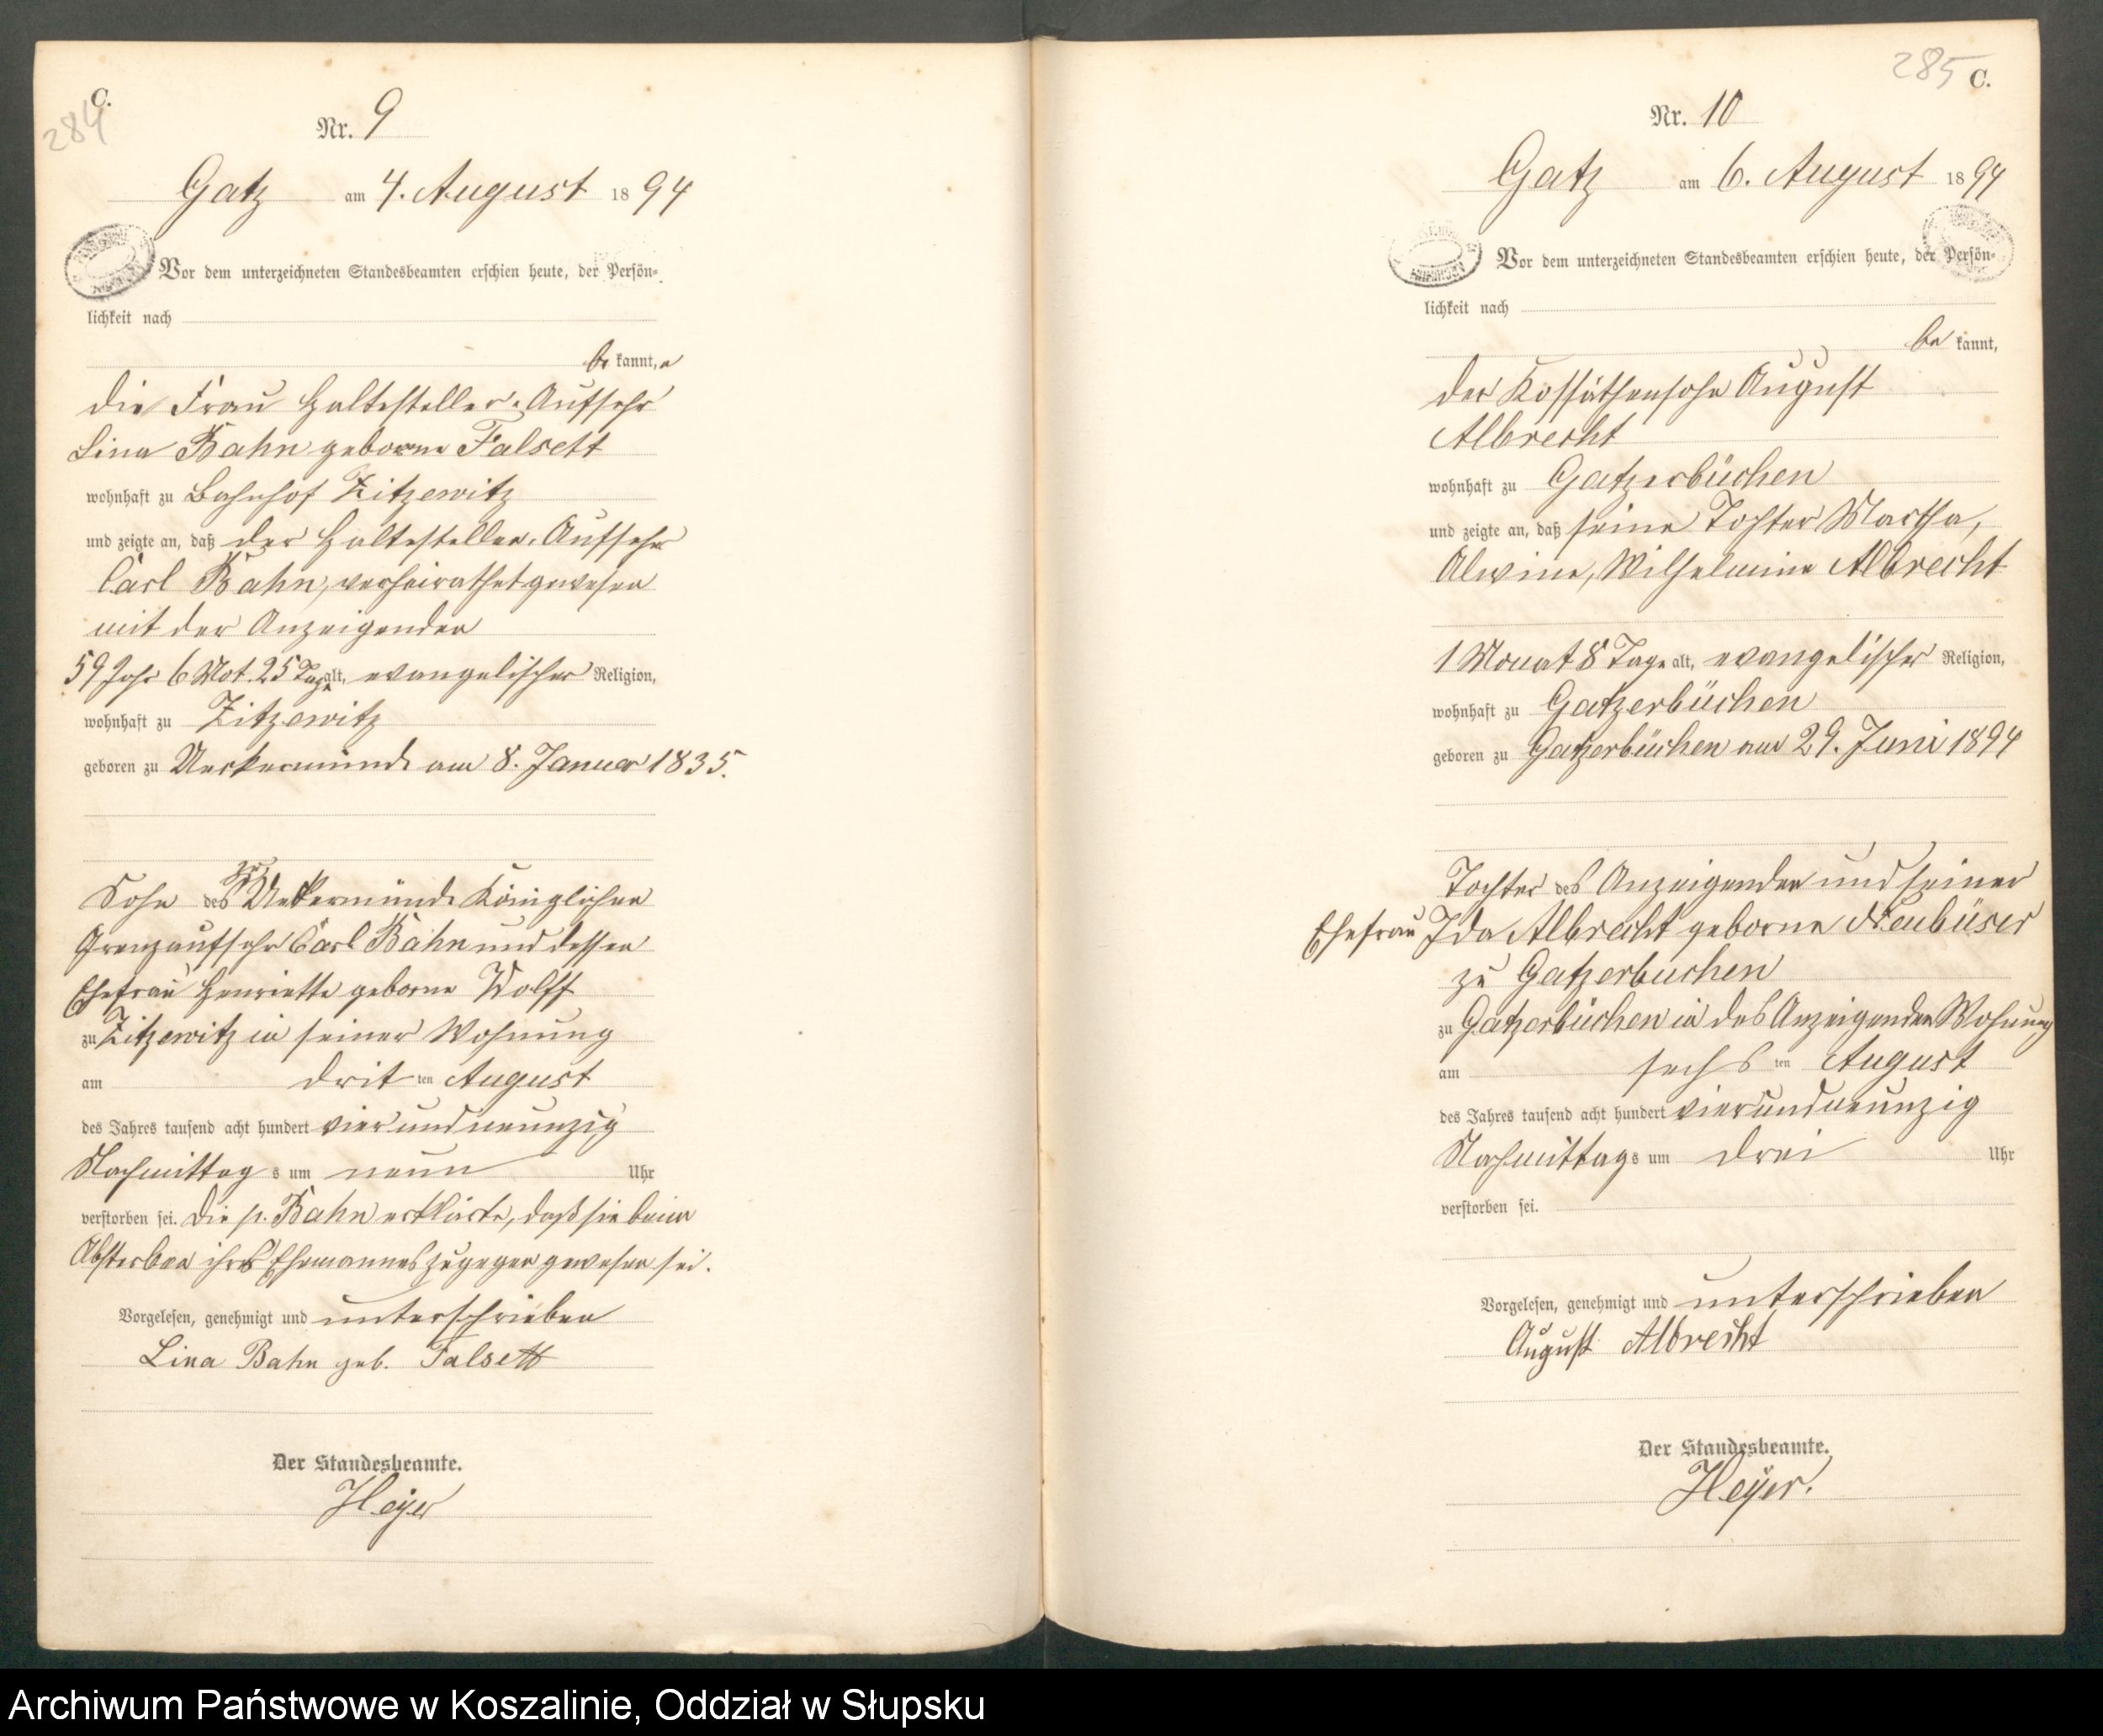 C.
284
Nr. 9
Gatz am 4. August 1894
Vor dem unterzeichneten Standesbeamten erschien heute, der Persön-
lichkeit nach
be kannt,
die Frau Haltesteller-Aufseher
Lina Bahn geborne Falsett
wohnhaft zu Bahnhof Zitzewitz
und zeigte an, daß der Haltesteller-Aufseher
Carl Bahn, verheirathet gewesen
mit der Anzeigenden
59 Jahr 6 Mot. 25 Tage alt, evangelischer Religion,
wohnhaft zu Zitzewitz
geboren zu Ueckermünde am 8. Januar 1835.
Sohn des zu Ueckermünde Königlichen
Grenzaufseher Carl Bahn und dessen
Ehefrau Henriette geborne Wolff
zu Zitzewitz in seiner Wohnung
am dritten August
des Jahres tausend acht hundert vierundneunzig
Nachmittags um neun Uhr
verstorben sei. Die p. Bahn erklärte, daß sie beim
Absterben ihres Ehemannes zugegen gewesen sei.
Vorgelesen, genehmigt und unterschrieben
Lina Bahn geb. Falsett
Der Standesbeamte.
Heyer
285 C.
Nr. 10
Gatz am 6. August 1894
Vor dem unterzeichneten Standesbeamten erschien heute, der Persön-
lichkeit nach
be kannt,
der Kossäthensohn August
Albrecht
wohnhaft zu Gatzerbüchen
und zeigte an, daß seine Tochter Martha,
Alwine, Wilhelmine Albrecht
1 Monat 8 Tage alt, evangelischer Religion,
wohnhaft zu Gatzerbüchen
geboren zu Gatzerbüchen am 29. Juni 1894
Tochter des Anzeigenden und seiner
Ehefrau Ida Albrecht geborne Neubüser
zu Gatzerbüchen
zu Gatzerbüchen in des Anzeigenden Wohnung
am sechsten August
des Jahres tausend acht hundert vierundneunzig
Nachmittags um drei Uhr
verstorben sei.
Vorgelesen, genehmigt und unterschrieben
August Albrecht
Der Standesbeamte.
Heyer.
Archiwum Państwowe w Koszalinie, Oddział w Słupsku